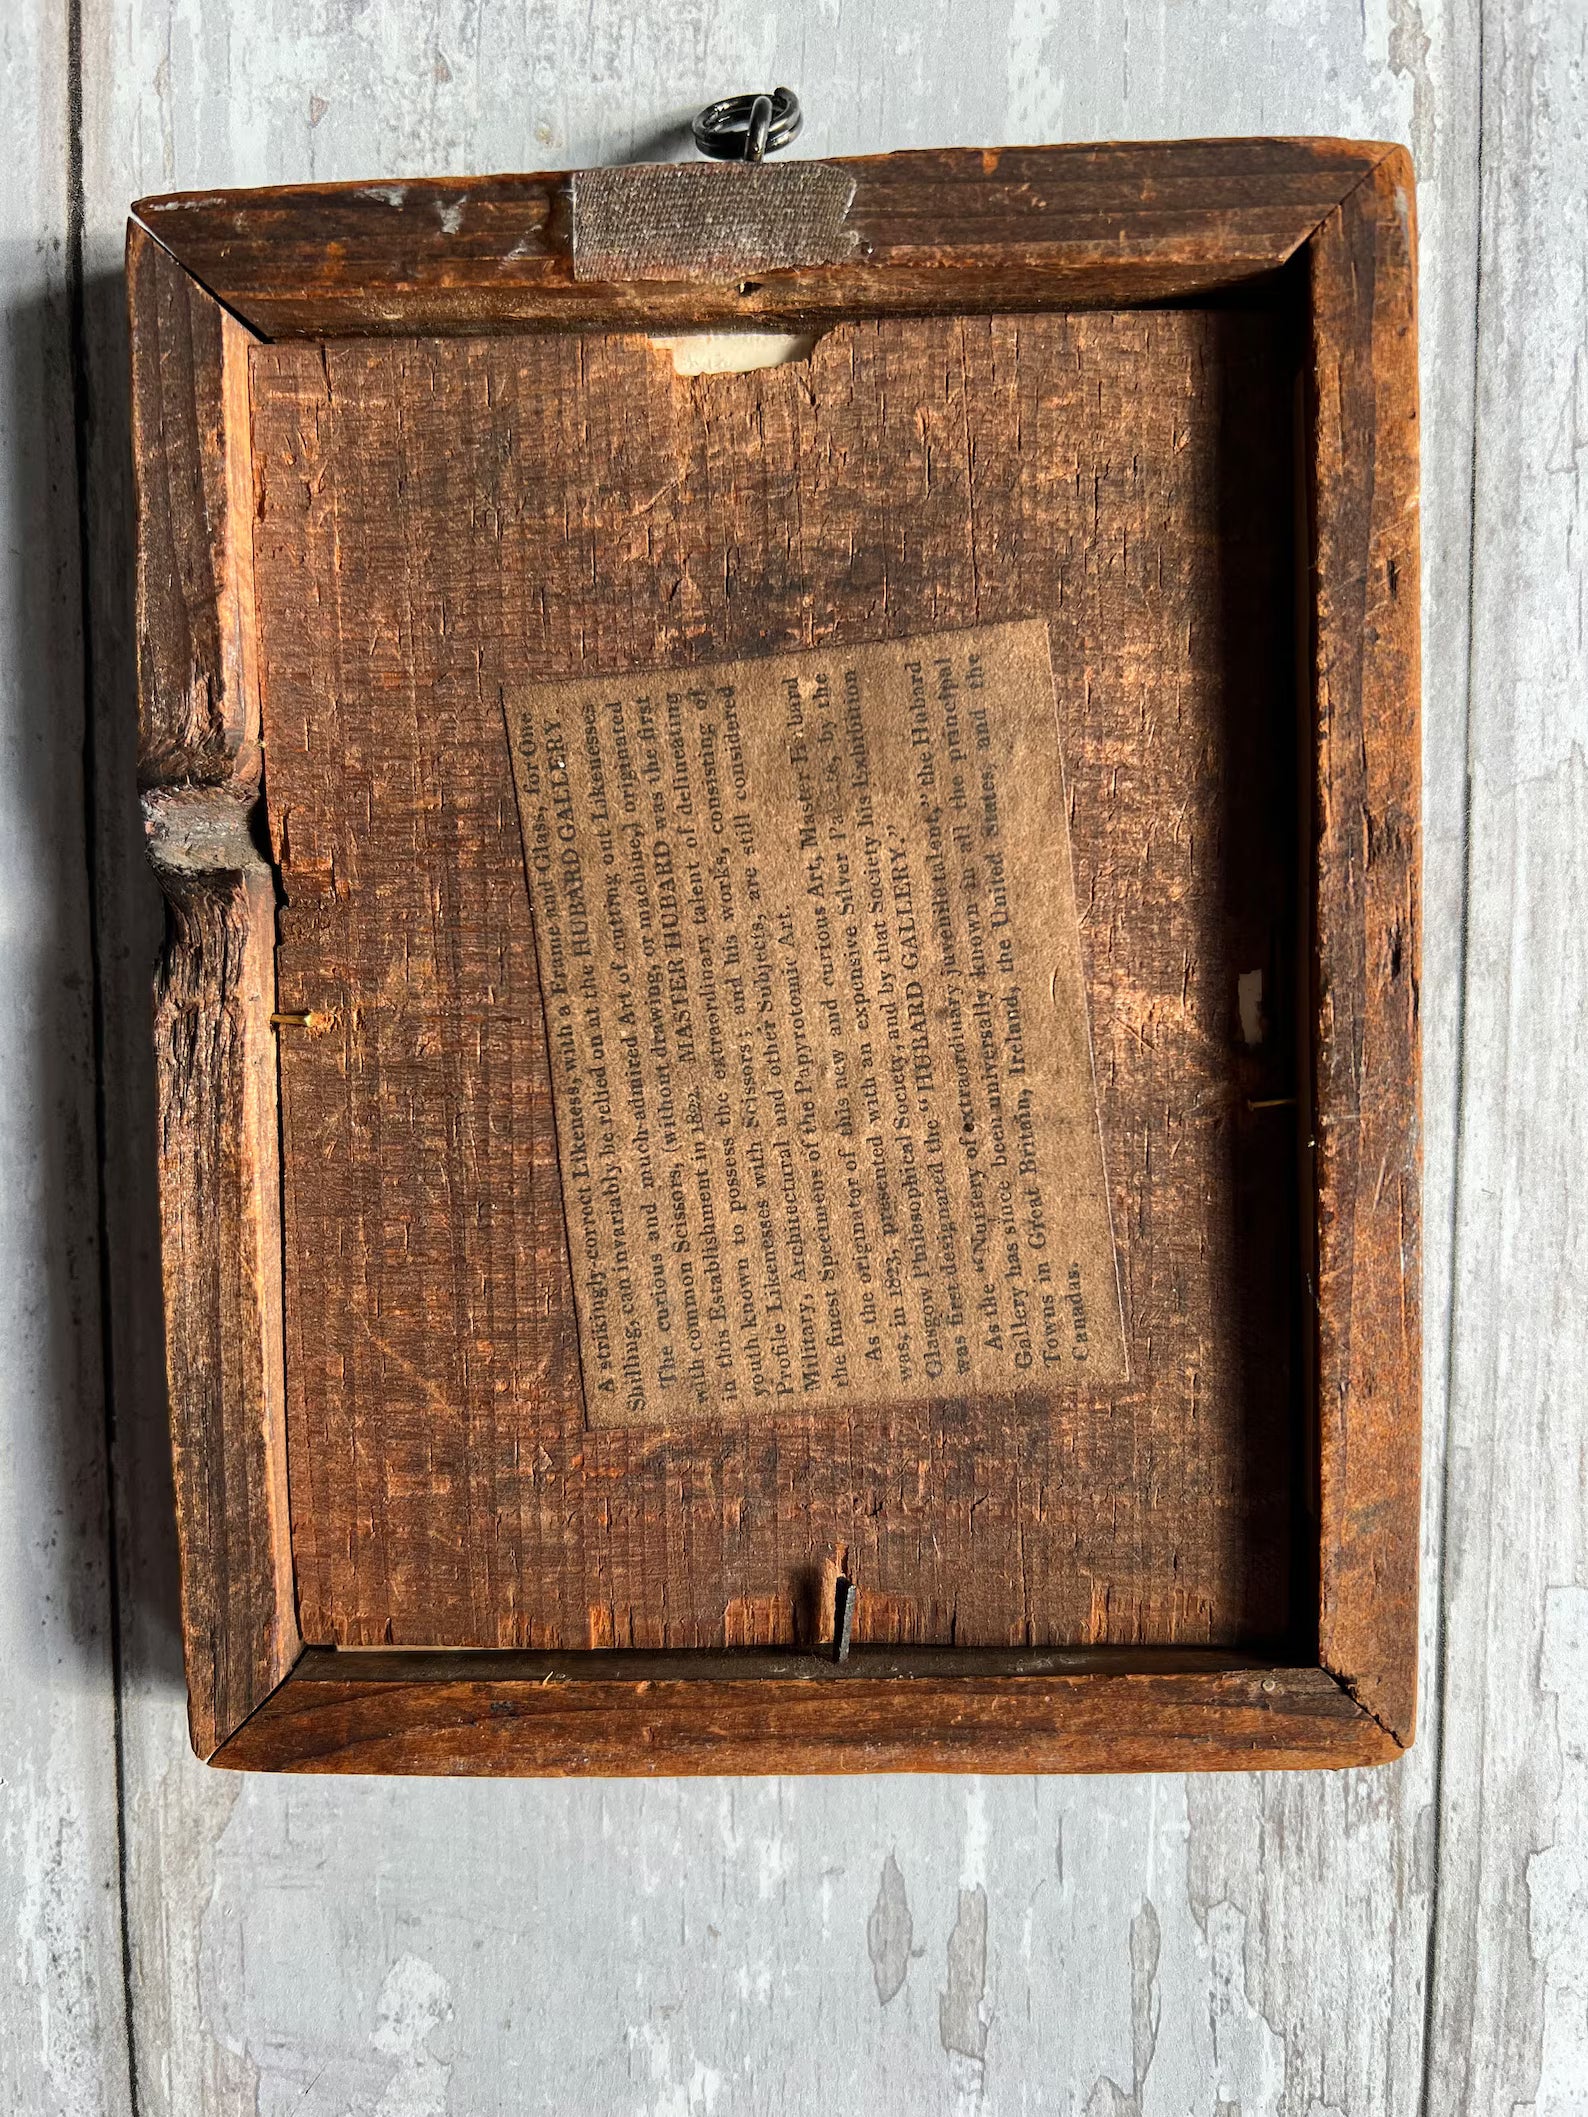 A strikingly-correct Likeness, with a Frame and Glass, for One
Shilling, can invariably be relied on at the HUBARD GALLERY.
The curious and much-admired Art of cutting out Likenesses
with common Scissors, (without drawing, or machine,) originated
in this Establishment in 1822. MASTER HUBARD was the first
youth known to possess the extraordinary talent of delineating
Profile Likenesses with Scissors; and his works, consisting of
Military, Architectural and other Subjects, are still considered
the finest Specimens of the Papyrotomic Art.
As the originator of this new and curious Art, Master
was, in 1823, presented with an expensive Silver by the
Glasgow Philosophical Society, and by that Society his Exhibition
was first designated the “HUBARD GALLERY.”
As the “Nursery of extraordinary juvenile talent,” the Hubard
Gallery has since been universally known in all the principal
Towns in Great Britain, Ireland, the United States, and the
Canadas.